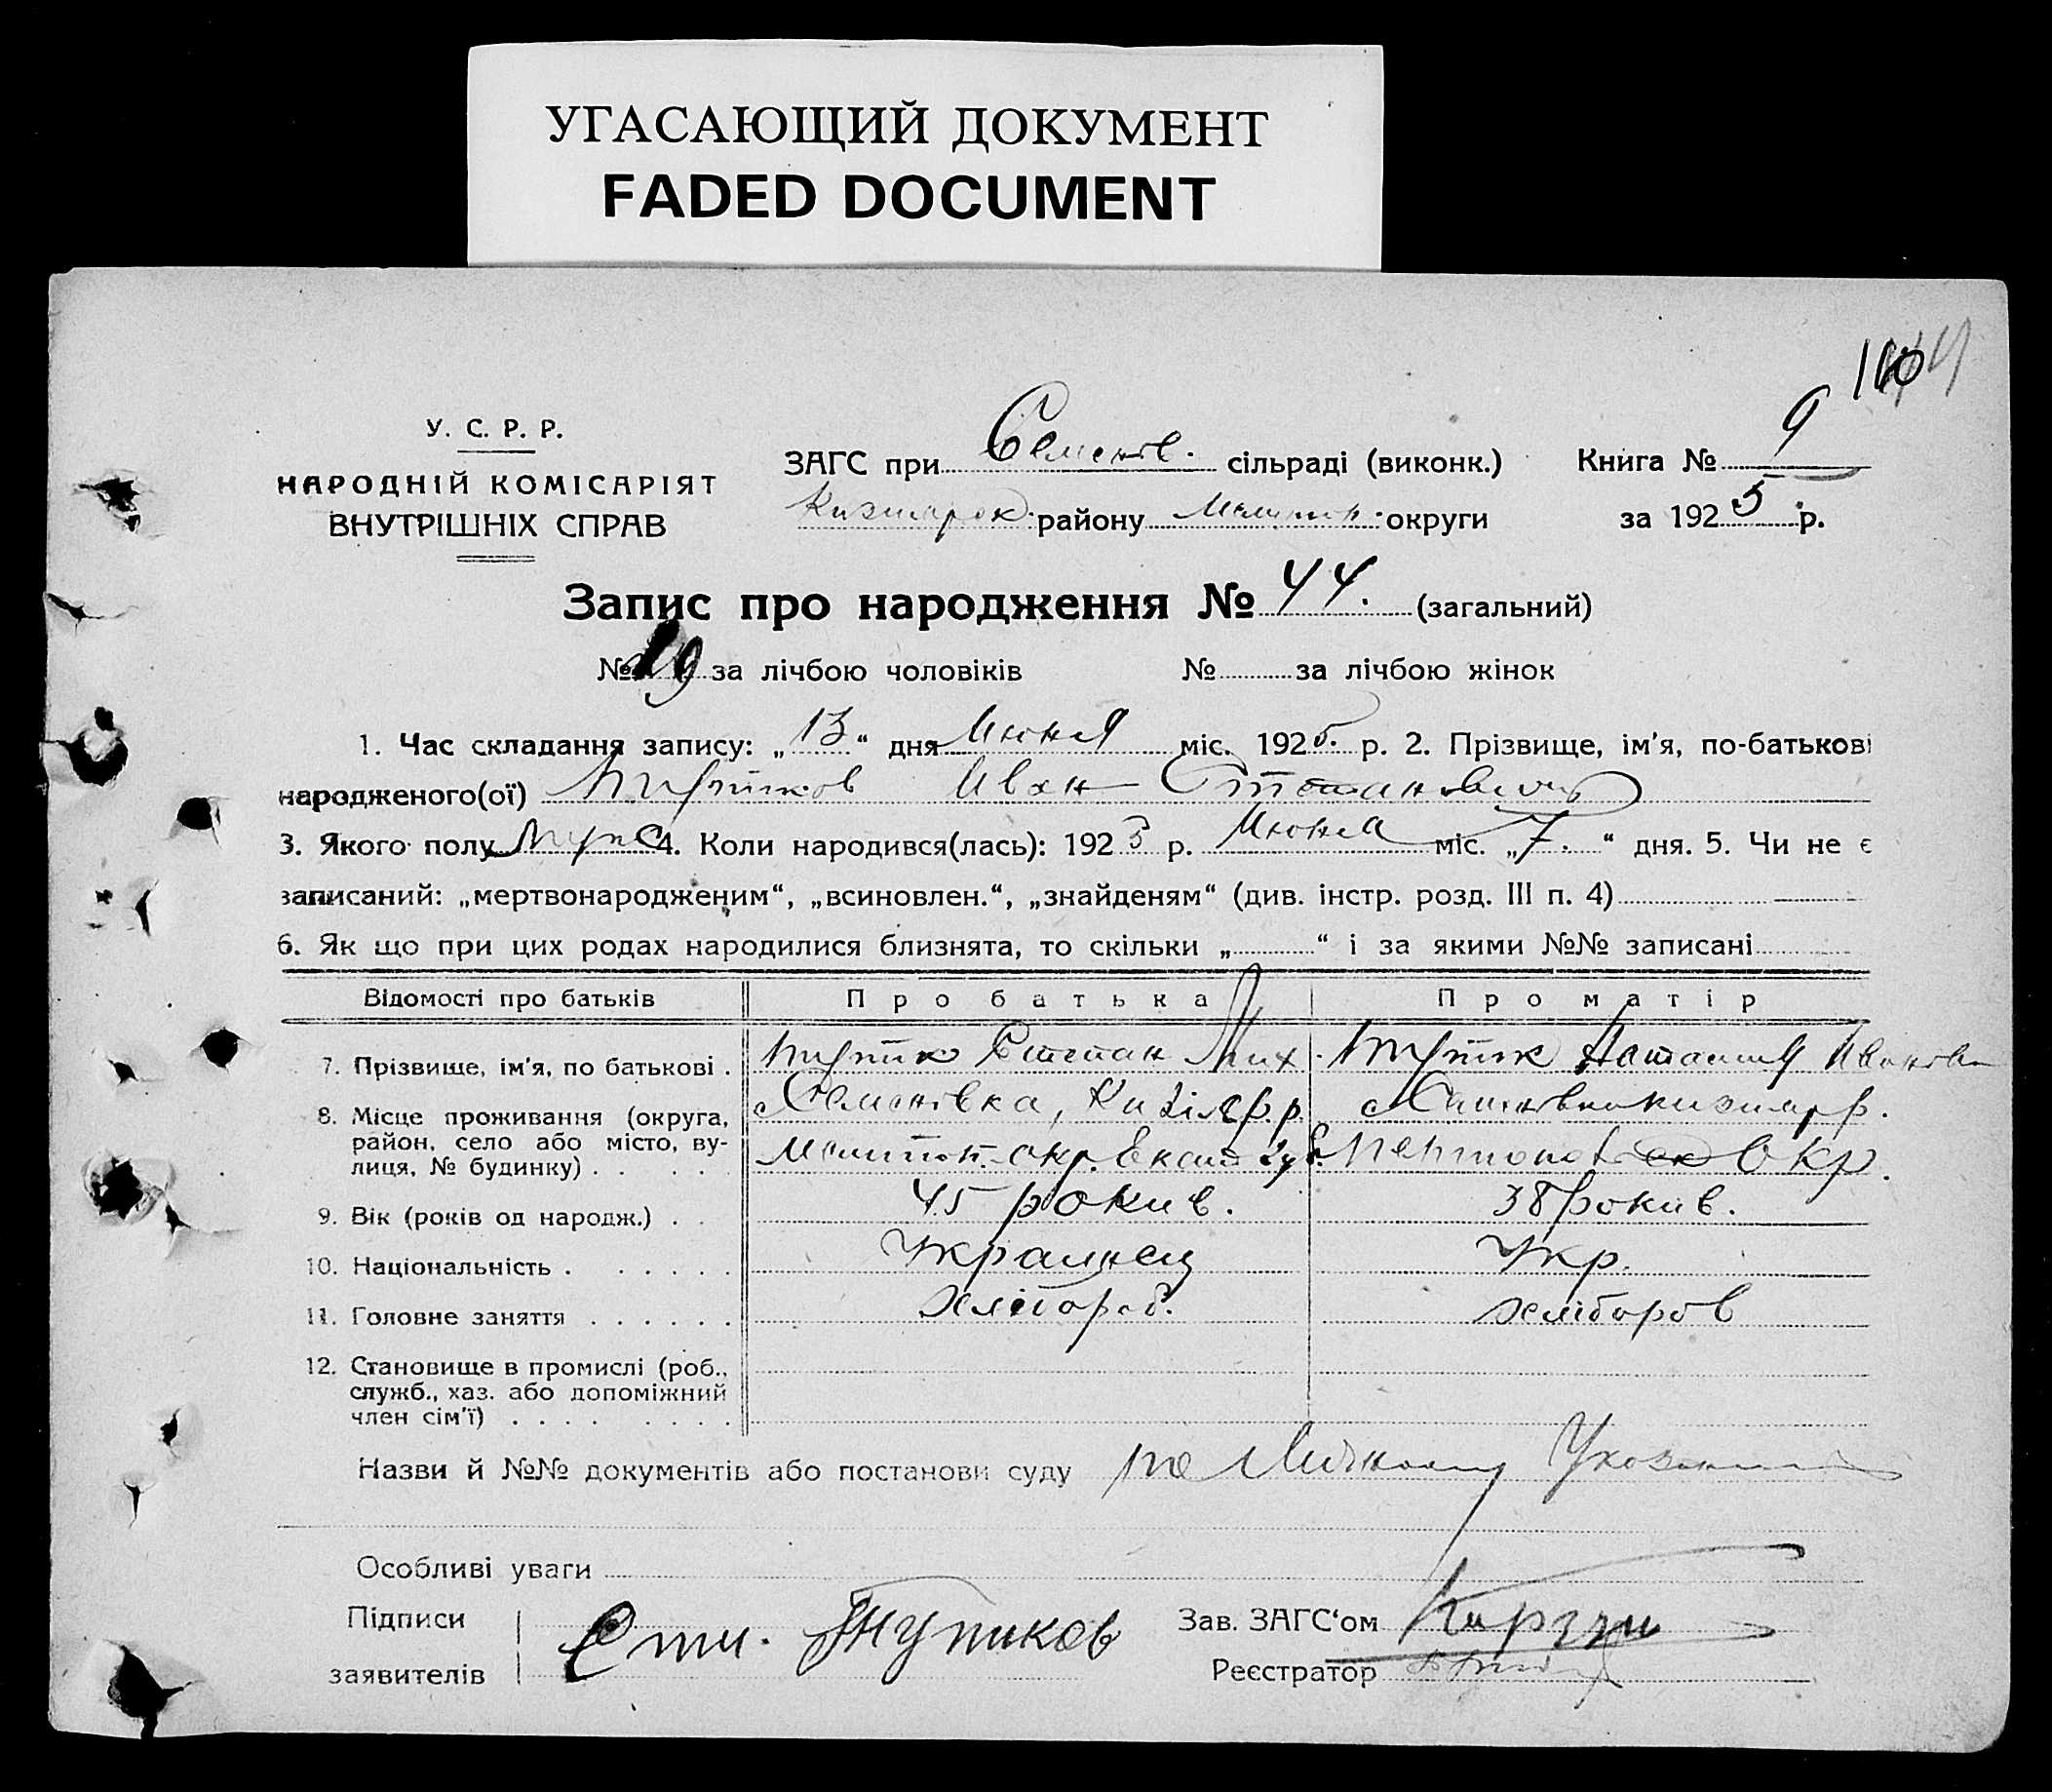 УГАСАЮЩИЙ ДОКУМЕНТ
FADED DOCUMENT
110
У. С. Р. Р.
НАРОДНІЙ КОМІСАРІЯТ
ВНУТРІШНІХ СПРАВ
ЗАГС при Семенів. сільраді (виконк.)
Книга № 9
району Мелитоп. округи
за 1925 р.
Запис про народження № 44. (загальний)
№ 19 за лічбою чоловіків № за лічбою жінок
1. Час складання запису: „13“ дня Июня міс. 1925. р. 2. Прізвище, ім'я, по-батькові
народженого(ої) Иван Степанович
3. Якого полу 4. Коли народився(лась): 1925 р. Июня міс. „7.“ дня. 5. Чи не є
записаний: „мертвонародженим“, „всиновлен.“, „знайденям“ (див. інстр. розд. III п. 4)
6. Як що при цих родах народилися близнята, то скільки „ “ і за якими №№ записані
Відомості про батьків Про батька Про матір
7. Прізвище, ім'я, по батькові . Степан Мих. Наталия Иванівна
8. Місце проживання (округа, район, село або місто, вулиця, № будинку) . . Семенівка, р. Мелитоп. окр. Екат. губ. Окр.
9. Вік (років од народж.) . . 45 рокив. 38 рокив.
10. Національність . Украинец Укр.
11. Головне заняття хлібороб. хлібороб
12. Становище в промислі (роб.,
служб., хаз. або допоміжний
член сім'ї)
Назви й №№ документів або постанови суду по Личному
Особливі уваги
Підписи
заявителів
Зав. ЗАГС'ом
Реєстратор